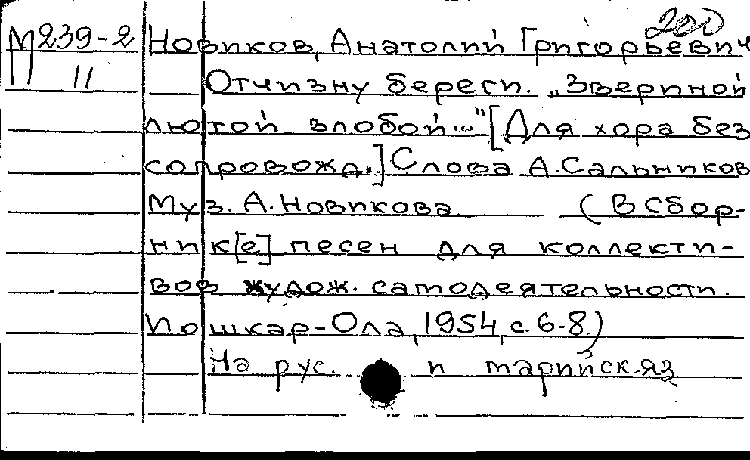 200
М239-2 Новиков, Анатолий Григорьевич
11 Отчизну береги. „Звериной
лютой злобой..." [Для хора без
сопровожд.] Слова А. Сальников
Муз. А. Новикова (В сбор-
ник[е] песен для коллекти-
вов худож. самодеятельности.
Йошкар-Ола, 1954, с. 6-8)
На рус. и марийск. яз